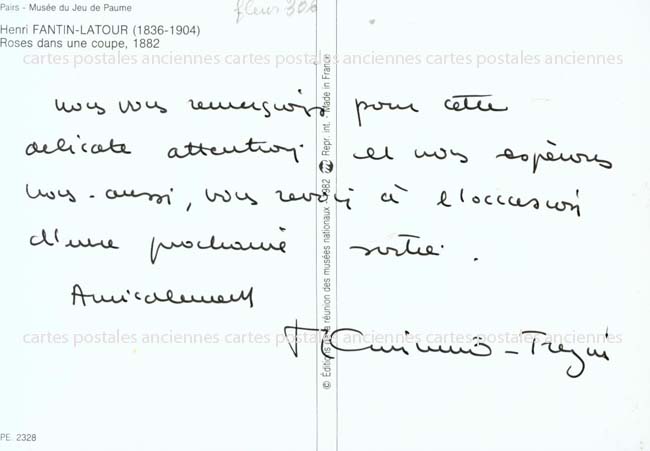 Pairs - Musée du Jeu de Paume
fleur 306
Henri FANTIN-LATOUR (1836-1904)
Roses dans une coupe, 1882
cartes postales anciennes cartes postales anciennes cartes postales anciennes
nous vous remercions pour cette
délicate attention et nous espérons
nous-aussi, vous revoir à l'occasion
d'une prochaine sortie.
Amicalement
cartes postales anciennes cartes postales anciennes cartes postales anciennes
© Éditions de la réunion des musées nationaux - 1982 Repr. int. - Made in France
PE. 2328